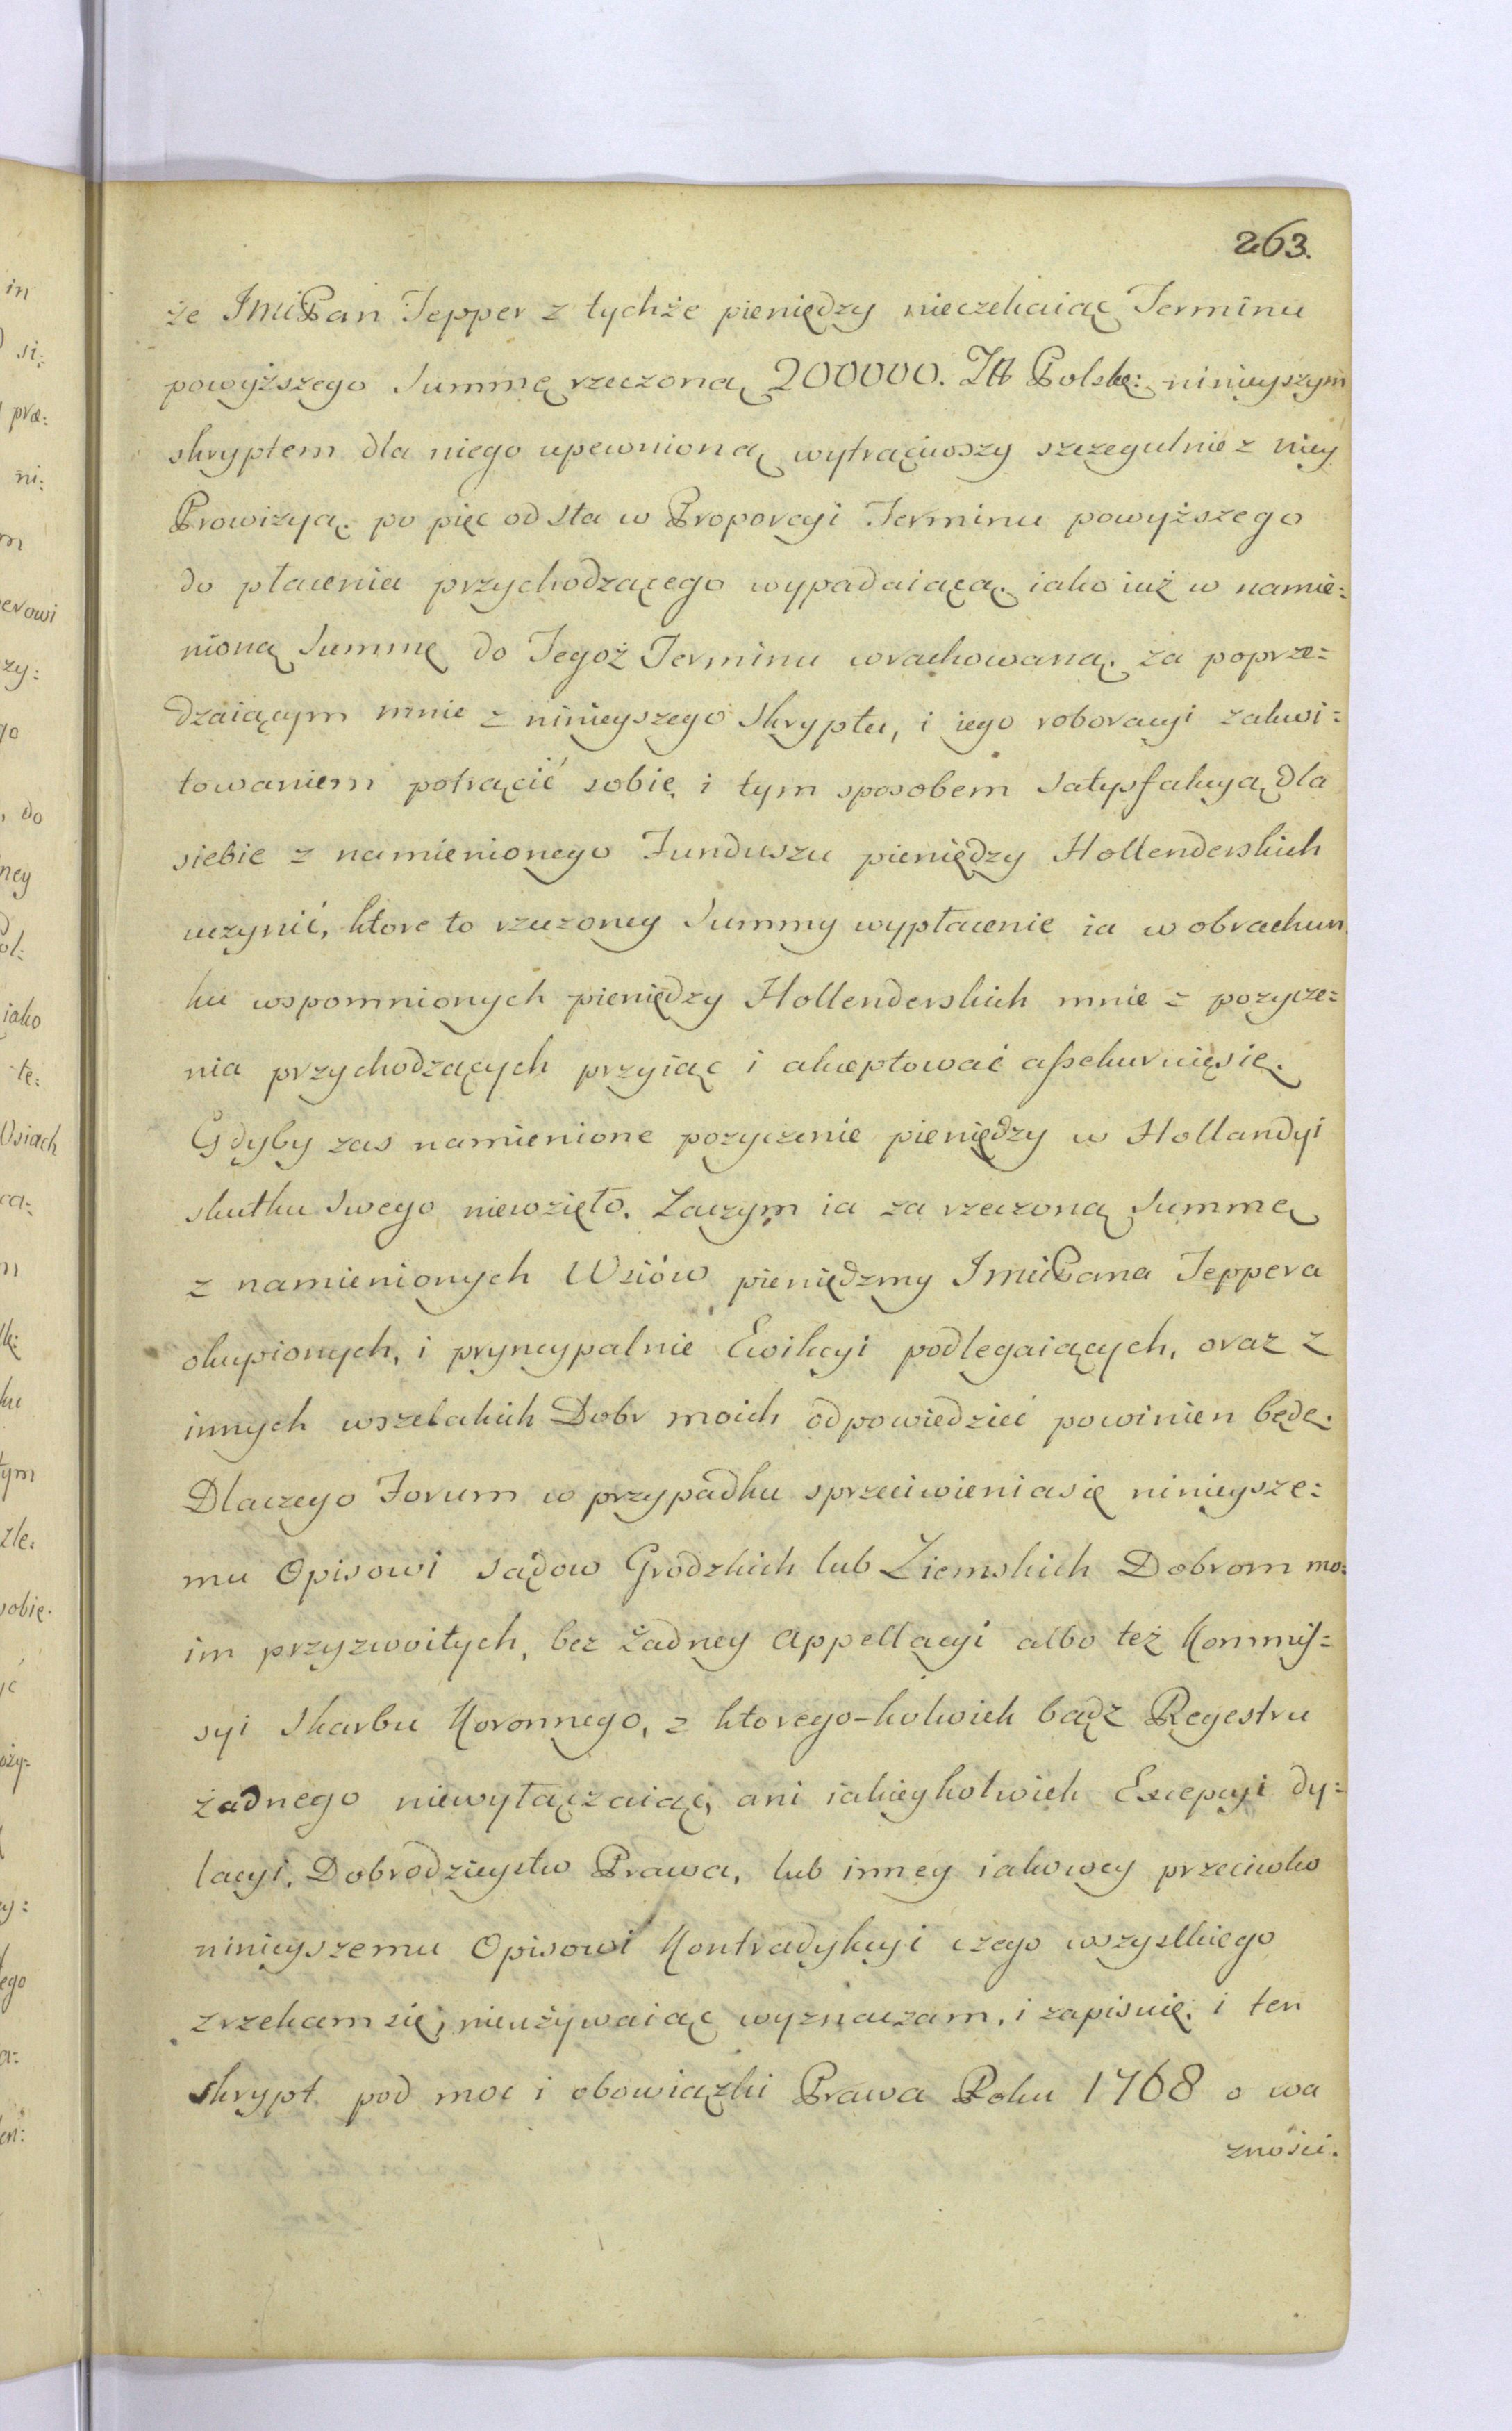 263.
że JmciPan Tepper z tychże pieniędzy nieczekaiąc Terminu
powyższego Summę rzeczoną 200000. Złł Polskę: ninieyszym
skryptem dla niego upewnioną wytrąciwszy szczegulnie z niey
Prowizyą po pięc od sta w Proporcyi Terminu powyższego
do płacenia przychodzącego wypadaiącą iako iuż w namie:
nioną Summę do Tegoż Terminu wrachowaną za poprze:
dzaiącym mnie z ninieyszego Skryptu, i iego roboracyi zakwi:
towaniem potrącić sobie, i tym sposobem Satysfakcyą dla
siebie z namienionego Funduszu pieniędzy Hollenderskich
uczynić, ktore to rzeczoney Summy wypłacenie ia w obrachun
ku wspomnionych pieniędzy Hollenderskich mnie z pozycze:
nia przychodzących przyiąc i akceptować assekuruięsię.
Gdyby zas namienione pozyczenie pieniędzy w Hollandyi
skutku Swego niewzięło. Zaczym ia za rzeczoną Summę
z namienionych Wsiów pieniędzmy JmciPana Teppera
okupionych, i pryncypalnie Ewikcyi podlegaiących, oraz z
innych wszelakich Dobr moich odpowiedzieć powinien będę.
Dlaczego Forum w przypadku sprzeciwieniasię ninieysze:
mu Opisowi Sądow Grodzkich lub Ziemskich Dobrom mo:
im przyzwoitych, bez Żadney Appellacyi albo też Kommis:
syi Skarbu Koronnego, z ktorego-kolwiek bądz Regestru
żadnego niewyłączaiąc, ani iakieykolwiek Excepcyi dy:
lacyi, Dobrodzieystw Prawa, lub inney iakowey przeciwko
ninieyszemu Opisowi Kontradykcyi czego wszystkiego
zrzekam się, nieużywaiąc wyznaczam, i zapisuię, i ten
skrypt pod moc i obowiązki Prawa Roku 1768 o wa
zności.
in
si:
præ:
ni:
m
erowi
zy:
go
, do
ney
ol:
iako
te:
Wsiach
ca:
m
ku
tym
zle:
sobie.
yć
oży:
y:
ego
a:
en: